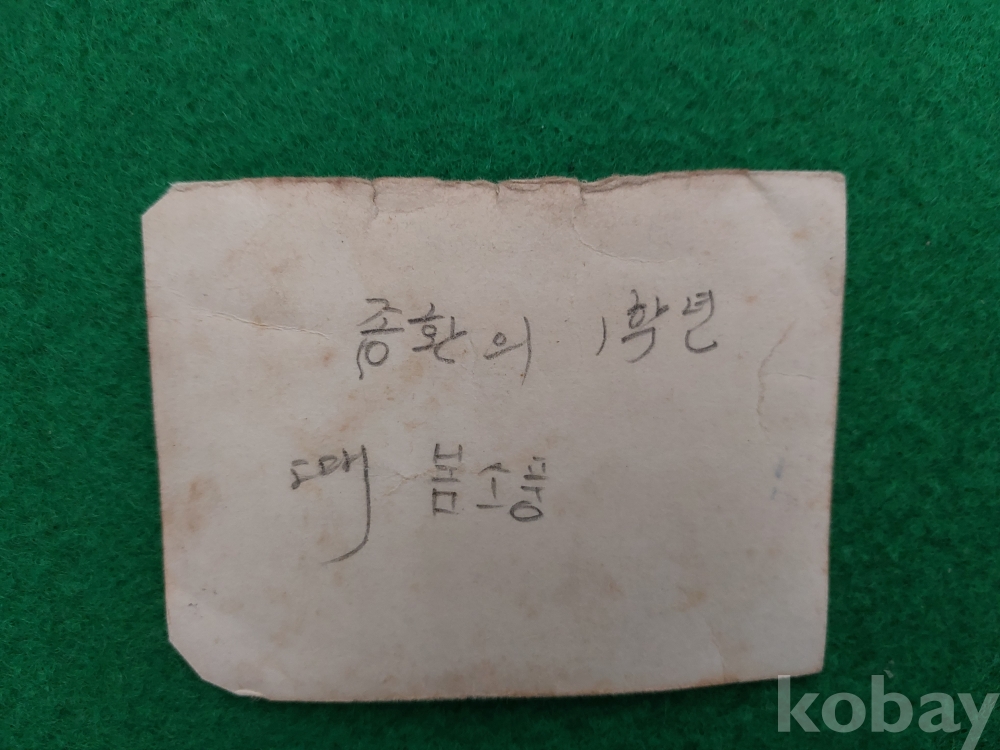 종환의 1학년
때 봄소풍
kobay